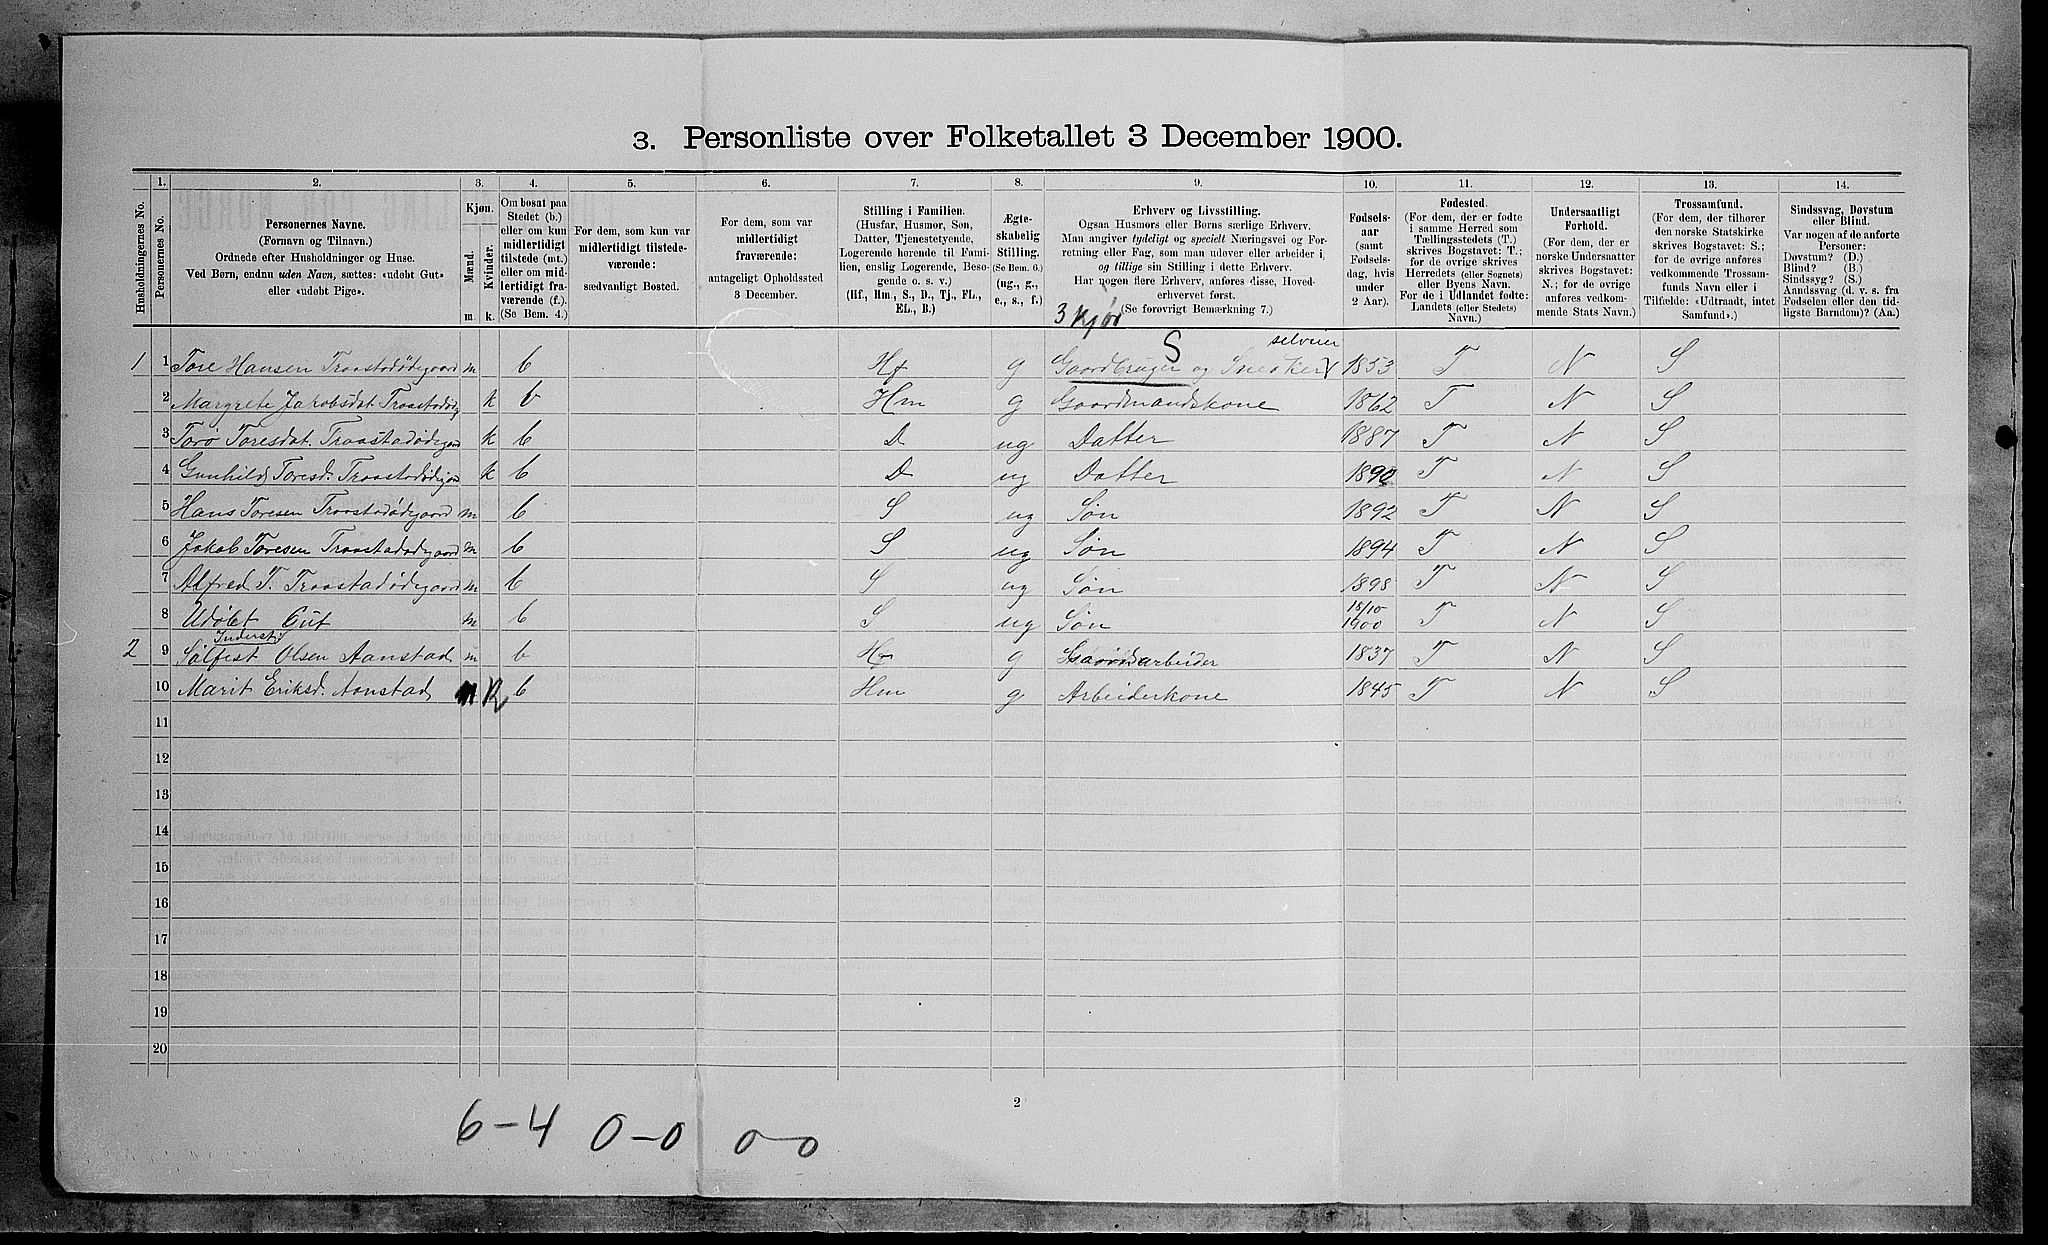 3. Personliste over Folketallet 3 December 1900.
1. 2. 3. 4. 5. 6. 7. 8. 9. 10. 11. 12. 13. 14.
Husholdningernes No.
Personernes No.
Personernes Navne.
(Fornavn og Tilnavn.)
Ordnede efter Husholdninger og Huse.
Ved Børn, endnu uden Navn, sættes: «udøbt Gut»
eller «udøbt Pige».
Kjøn.
Mænd.
Kvinder.
m. k.
Om bosat paa
Stedet (b.)
eller om kun
midlertidigt
tilstede (mt.)
eller om mid-
lertidigt fra-
værende (f.).
(Se Bem. 4.)
For dem, som kun var
midlertidigt tilstede-
værende:
sædvanligt Bosted.
For dem, som var
midlertidigt
fraværende:
antageligt Opholdssted
3 December.
Stilling i Familien.
(Husfar, Husmor, Søn,
Datter, Tjenestetyende,
Logerende hørende til Fami-
lien, enslig Logerende, Besø-
gende o. s. v.)
(Hf., Hm., S., D., Tj., FL.,
EL., B.)
Ægte-
skabelig
Stilling.
(Se Bem. 6.)
(ug., g.,
e., s., f.)
Erhverv og Livsstilling.
Ogsaa Husmors eller Børns særlige Erhverv.
Man angiver tydeligt og specielt Næringsvei og For-
retning eller Fag, som man udøver eller arbeider i,
og tillige sin Stilling i dette Erhverv.
Har nogen flere Erhverv, anføres disse, Hoved-
erhvervet først.
(Se forøvrigt Bemærkning 7.)
Fødsels-
aar
(samt
Fødsels-
dag, hvis
under
2 Aar).
Fødested.
(For dem, der er fødte
i samme Herred som
Tællingsstedets (T.)
skrives Bogstavet: T.;
for de øvrige skrives
Herredets (eller Sognets)
eller Byens Navn.
For de i Udlandet fødte:
Landets (eller Stedets)
Navn.)
Undersaatligt
Forhold.
(For dem, der er
norske Undersaatter
skrives Bogstavet:
N.; for de øvrige
anføres vedkom-
mende Stats Navn.)
Trossamfund.
(For dem, der tilhører
den norske Statskirke
skrives Bogstavet: S.;
for de øvrige anføres
vedkommende Trossam-
funds Navn eller i
Tilfælde: «Udtraadt, intet
Samfund».)
Sindssvag, Døvstum
eller Blind.
Var nogen af de anførte
Personer:
Døvstum? (D.)
Blind? (B.)
Sindssyg? (S.)
Aandssvag (d. v. s. fra
Fødselen eller den tid-
ligste Barndom)? (Aa.)
3 Kjør
S selveier
1 1 Tore Hansen Traastadødegaard m b Hf g Gaardbruger og Snedker 1853 T N S
2 Margrete Jakobsdat. Traastadødg k b Hm g Gaardmandskone 1862 T N S
3 Torø Toresdat. Traastadødegaar k b D ug Datter 1887 T N S
4 Gunhild Toresd. Traastadødegaa k b D ug Datter 1890 T N S
5 Hans Toresen Traastadødegaard m b S ug Søn 1892 T N S
6 Jakob Toresen Traastadødegaard m b S ug Søn 1894 T N S
7 Alfred T. Traastadødegaard m b S ug Søn 1898 T N S
8 Udøbt Gut m b S ug Søn 18/10 1900 T N S
Inderst
2 9 Sølfest Olsen Aanstad m b Hf g Gaardsarbeider 1837 T N S
10 Marit Eriksd. Aanstad k b Hm g Arbeiderkone 1845 T N S
11
12
13
14
15
16
17
18
19
20
2
6-4 0-0 0-0